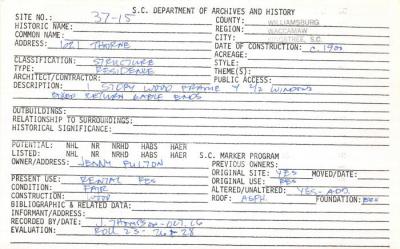 S.C. DEPARTMENT OF ARCHIVES AND HISTORY
SITE NO.: 37-15 COUNTY: WILLIAMSBURG
HISTORIC NAME: REGION: WACCAMAW
COMMON NAME: CITY: KINGSTREE, S.C.
ADDRESS: 1021 THORNE DATE OF CONSTRUCTION: c. 1900
ACREAGE:
CLASSIFICATION: STRUCTURE STYLE:
TYPE: RESIDENCE THEME(S):
ARCHITECT/CONTRACTOR: PUBLIC ACCESS:
DESCRIPTION: 1 STORY WOOD FRAME WINDOWS
RETURN GABLE ENDS
OUTBUILDINGS:
RELATIONSHIP TO SURROUNDINGS:
HISTORICAL SIGNIFICANCE:
POTENTIAL: NHL NR NRHD HABS HAER
LISTED: NHL NR NRHD HABS HAER S.C. MARKER PROGRAM
OWNER/ADDRESS: JENNY FULTON PREVIOUS OWNERS:
ORIGINAL SITE: YES MOVED/DATE:
PRESENT USE: RENTAL RES ORIGINAL USE: RES
CONDITION: FAIR ALTERED/UNALTERED: YES-ADD.
CONSTRUCTION: WOOD ROOF: ASPH. FOUNDATION:
BIBLIOGRAPHIC & RELATED DATA:
INFORMANT/ADDRESS:
RECORDED BY/DATE: J. THOMPSON
EVALUATION: ROLL 25-